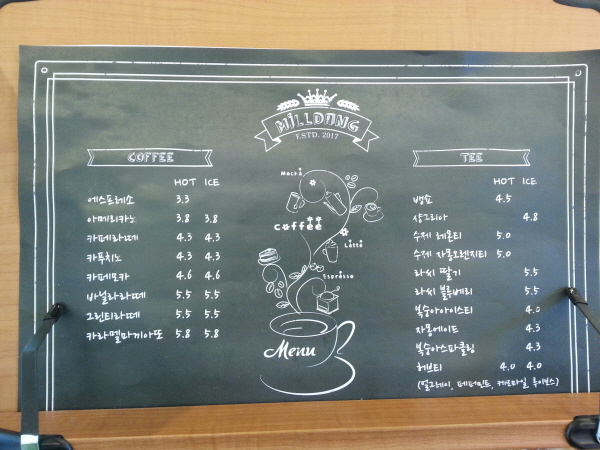 MILLDANG
ESTD. 2017
COFFEE
HOT ICE
에스프레소 3.3
아메리카노 3.8 3.8
카페라떼 4.3 4.3
카푸치노 4.3 4.3
카페모카 4.6 4.6
바닐라라떼 5.5 5.5
그린티라떼 5.5 5.5
카라멜마끼아또 5.8 5.8
Mocha
coffee
Latte
Espresso
Menu
TEE
HOT ICE
뱅쇼 4.5
샹그리아 4.8
수제 레몬티 5.0
수제 자몽오렌지티 5.0
라씨 딸기 5.5
라씨 블루베리 5.5
복숭아아이스티 4.0
자몽에이드 4.3
복숭아스파클링 4.3
허브티 4.0 4.0
(얼그레이, 페퍼민트, 캐모마일, 루이보스)